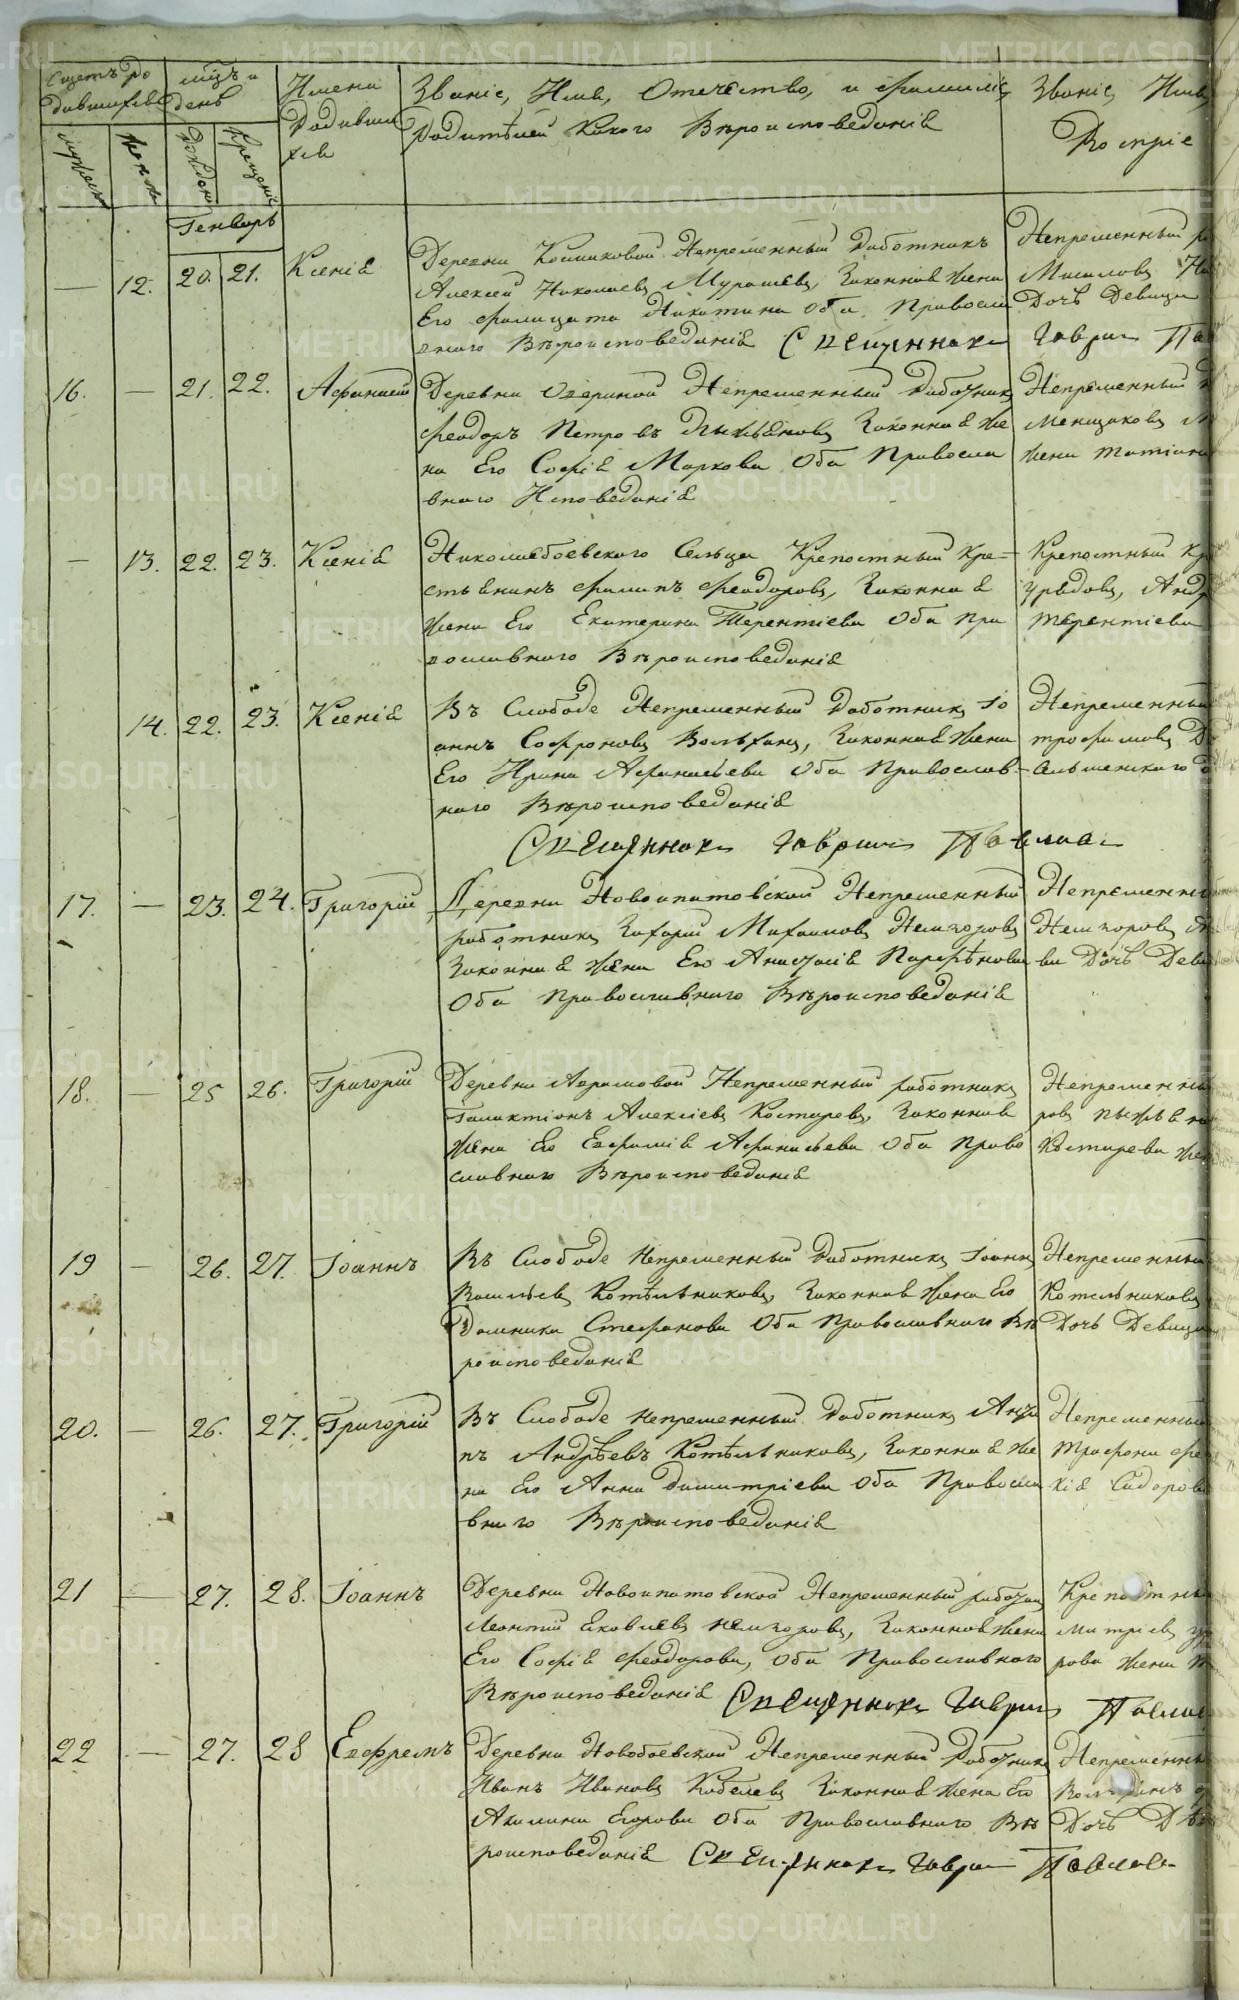 Счетъ ро
дившихся
мцъ и
день
Имена
Родивши
хся
Званіе, Имя, Отечество, и фамилія
Родителей Какого Вѣроисповеданія
Званіе, Имя
Воспріе
мужеска
женска
Рожденія
Крещенія
Генварь
12. 20. 21. Ксенія
Деревни Непременный Работникъ
Алексей Николаевъ Мурашевъ, Законная жена
Его Фелицата Никитина Оба Правосла
внаго Вѣроисповеданія Священникъ Гаврилъ
Непременный
Дочь Девица
16. — 21. 22. Афанасий
Деревни Озериной Непременный Работникъ
Феодоръ Петровъ Пыжьяновъ Законная Же
на Его Софія Маркова Оба Правосла
внаго Исповеданія
Непременный
Менщиковъ
жена Татіана
— 13. 22. 23. Ксенія
Николаебоевскаго Сельца Крепостный Кре–
стьянинъ Филипъ Феодоровъ, Законная
Жена Его Екатерина Терентіева Оба Пра
вославнаго Вѣроисповеданія
Крепостный Кр
Терентіева
14. 22. 23. Ксенія
Въ Слободе Непременный Работникъ Іо
аннъ Софроновъ, Законная Жена
Его Ирина Афанасьева Оба Православ–
наго Вѣроисповеданія
Непременный
трофимовъ
Священникъ Гаврилъ Павлов
17. — 23. 24. Григорій
Деревни Новоипатовской Непременный
работникъ Захарий Михаиловъ Немзоровъ
Законная Жена Его Анастасія Парфѣнова
Оба Православнаго Вѣроисповеданія
Непременны
Немзоровъ
ва Дочь Деви
18. — 25 26. Григорій
Деревни Абрамовой Непременный работникъ
Галактіонъ Алексіевъ Костаревъ, Законная
Жена Его Евфимія Афанасьева Оба Право
славнаго Вѣроисповеданія
Непременны
ровъ Пыжьяно
Костарева Жен
19 — 26. 27. Іоаннъ
Въ Слободе Непременный Работникъ Іоаннъ
Васильевъ Котѣльниковъ, Законная Жена Его
Домника Стефанова Оба Православнаго Вѣ
роисповеданія
Непременный
Котельниковъ
Дочь Девица
20. — 26. 27. Григорій
Въ Слободе Непременный Работникъ Анти
пъ Андрѣевъ Котѣльниковъ, Законная Же
на Его Анна Димитріева Оба Правосла
внаго Вѣроисповеданія
Непременный
Сидоров
21 — 27. 28. Іоаннъ
Деревни Новоипатовской Непременный работник
Леонтій Яковлевъ Немзоровъ, Законная Жена
Его Софія Феодорова, Оба Православнаго
Вѣроисповеданія Священникъ Гаврилъ Павлов
Крепостны
митріевъ
рова Жена
22 — 27. 28 Евфремъ
Деревни Новобоевской Непременный Работникъ
Иванъ Ивановъ Кобелевъ Законная Жена Его
Акилина Егорова Оба Православнаго Вѣ
роисповеданія Священникъ Гаврилъ Павлов
Непременны
Дочь Дев
METRIKI.GASO-URAL.RU